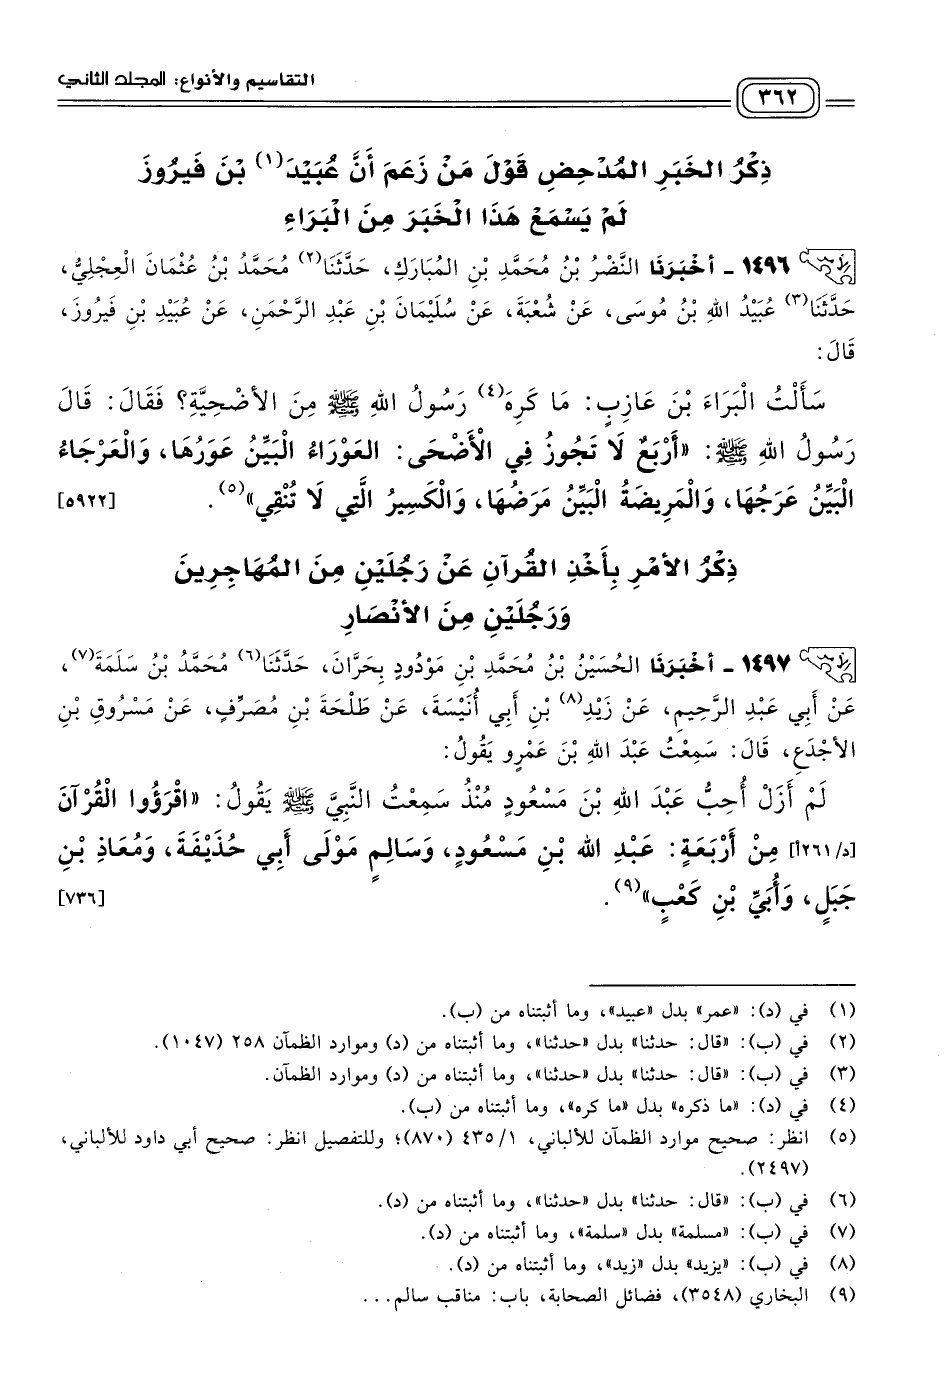 التقاسيم والأنواع: المجلد الثاني
٣٦٢
ذِكْرُ الخَبَرِ المُدْحِضِ قَوْلَ مَنْ زَعَمَ أَنَّ عُبَيْدَ(١) بْنَ فَيْرُوزَ
لَمْ يَسْمَعْ هَذَا الْخَبَرَ مِنَ الْبَرَاءِ
١٤٩٦ - أَخْبَرَنَا النَّضْرُ بْنُ مُحَمَّدِ بْنِ المُبَارَكِ، حَدَّثَنَا(٢) مُحَمَّدُ بْنُ عُثْمَانَ الْعِجْلِيُّ،
حَدَّثَنَا(٣) عُبَيْدُ اللهِ بْنُ مُوسَى، عَنْ شُعْبَةَ، عَنْ سُلَيْمَانَ بْنِ عَبْدِ الرَّحْمَنِ، عَنْ عُبَيْدِ بْنِ فَيْرُوزَ،
قَالَ:
سَأَلْتُ الْبَرَاءَ بْنَ عَازِبٍ: مَا كَرِهَ(٤) رَسُولُ اللهِ ﷺ مِنَ الأُضْحِيَّةِ؟ فَقَالَ: قَالَ
رَسُولُ اللهِ ﷺ: «أَرْبَعٌ لَا تَجُوزُ فِي الْأَضْحَى: العَوْرَاءُ الْبَيِّنُ عَوَرُهَا، وَالْعَرْجَاءُ
الْبَيِّنُ عَرَجُهَا، وَالْمَرِيضَةُ الْبَيِّنُ مَرَضُهَا، وَالْكَسِيرُ الَّتِي لَا تُنْقِي»(٥). [٥٩٢٢]
ذِكْرُ الأَمْرِ بِأَخْذِ القُرآنِ عَنْ رَجُلَيْنِ مِنَ المُهَاجِرِينَ
وَرَجُلَيْنِ مِنَ الأَنْصَارِ
١٤٩٧ - أَخْبَرَنَا الحُسَيْنُ بْنُ مُحَمَّدِ بْنِ مَوْدُودٍ بِحَرَّانَ، حَدَّثَنَا(٦) مُحَمَّدُ بْنُ سَلَمَةَ(٧)،
عَنْ أَبِي عَبْدِ الرَّحِيمِ، عَنْ زَيْدِ(٨) بْنِ أَبِي أُنَيْسَةَ، عَنْ طَلْحَةَ بْنِ مُصَرِّفٍ، عَنْ مَسْرُوقِ بْنِ
الأَجْدَعِ، قَالَ: سَمِعْتُ عَبْدَ اللهِ بْنَ عَمْرٍو يَقُولُ:
لَمْ أَزَلْ أُحِبُّ عَبْدَ اللهِ بْنَ مَسْعُودٍ مُنْذُ سَمِعْتُ النَّبِيَّ ﷺ يَقُولُ: «اقْرَؤُوا الْقُرْآنَ
[د/٢٦١أ] مِنْ أَرْبَعَةٍ: عَبْدِ اللهِ بْنِ مَسْعُودٍ، وَسَالِمٍ مَوْلَى أَبِي حُذَيْفَةَ، وَمُعَاذِ بْنِ
جَبَلٍ، وَأُبَيِّ بْنِ كَعْبٍ»(٩). [٧٣٦]
(١) في (د): «عمر» بدل «عبيد»، وما أثبتناه من (ب).
(٢) في (ب): «قال: حدثنا» بدل «حدثنا»، وما أثبتناه من (د) وموارد الظمآن ٢٥٨ (١٠٤٧).
(٣) في (ب): «قال: حدثنا» بدل «حدثنا»، وما أثبتناه من (د) وموارد الظمآن.
(٤) في (د): «ما ذكره» بدل «ما كره»، وما أثبتناه من (ب).
(٥) انظر: صحيح موارد الظمآن للألباني، ٤٣٥/١ (٨٧٠)؛ وللتفصيل انظر: صحيح أبي داود للألباني،
(٢٤٩٧).
(٦) في (ب): «قال: حدثنا» بدل «حدثنا»، وما أثبتناه من (د).
(٧) في (ب): «مسلمة» بدل «سلمة»، وما أثبتناه من (د).
(٨) في (ب): «يزيد» بدل «زيد»، وما أثبتناه من (د).
(٩) البخاري (٣٥٤٨)، فضائل الصحابة، باب: مناقب سالم...